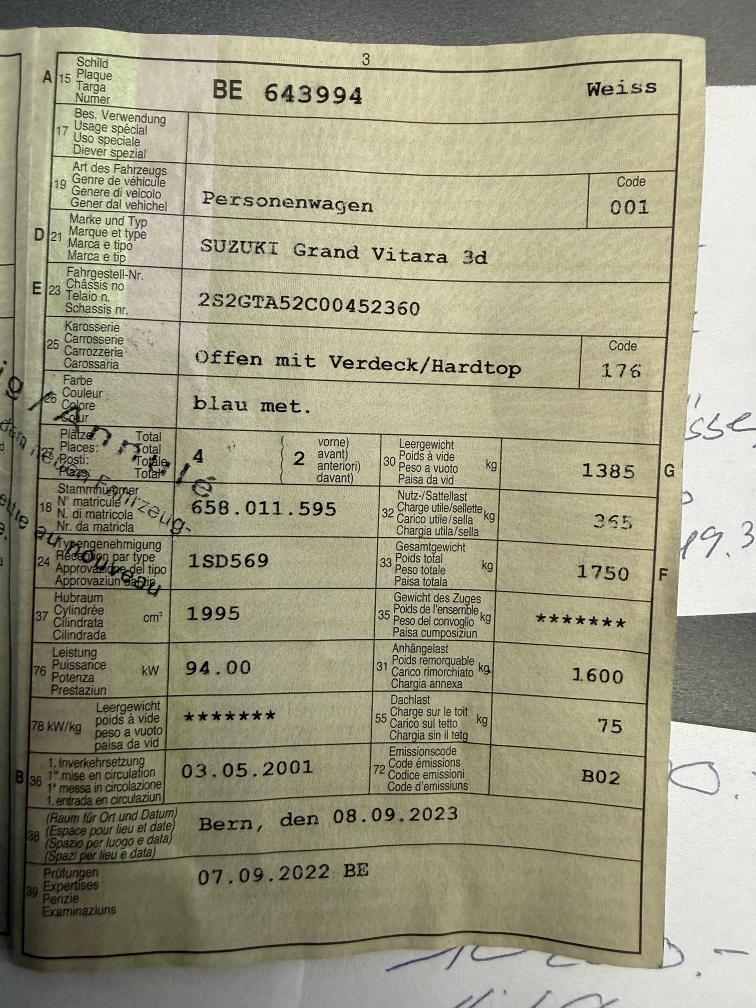 3
A 15 Schild
Plaque
Targa
Numer
BE 643994 Weiss
17 Bes. Verwendung
Usage spécial
Uso speciale
Diever spezial
19 Art des Fahrzeugs
Genre de véhicule
Genere di veicolo
Gener dal vehichel
Personenwagen
Code
001
D 21 Marke und Typ
Marque et type
Marca e tipo
Marca e tip
SUZUKI Grand Vitara 3d
E 23 Fahrgestell-Nr.
Châssis no
Telaio n.
Schassis nr.
2S2GTA52C00452360
25 Karosserie
Carrosserie
Carrozzeria
Carossaria
Offen mit Verdeck/Hardtop
Code
176
26 Farbe
Couleur
Colore
Colur
blau met.
27 Plätze: Total
Places: Total
Posti: Totale
Plazs: Total
4
2
vorne)
avant)
anteriori)
davant)
30 Leergewicht
Poids à vide
Peso a vuoto
Paisa da vid
kg
1385 G
18 Stammnummer
N° matricule
N. di matricola
Nr. da matricla
658.011.595
32 Nutz-/Sattellast
Charge utile/sellette
Carico utile/sella
Chargia utila/sella
kg
365
24 Typengenehmigung
Réception par type
Approvazione del tipo
Approvaziun da tip
1SD569
33 Gesamtgewicht
Poids total
Peso totale
Paisa totala
kg
1750 F
37 Hubraum
Cylindrée
Cilindrata
Cilindrada
cm³
1995
35 Gewicht des Zuges
Poids de l'ensemble
Peso del convoglio
Paisa cumposiziun
kg
*******
76 Leistung
Puissance
Potenza
Prestaziun
kW
94.00
31 Anhängelast
Poids remorquable
Carico rimorchiato
Chargia annexa
kg
1600
78 kW/kg Leergewicht
poids à vide
peso a vuoto
paisa da vid
*******
55 Dachlast
Charge sur le toit
Carico sul tetto
Chargia sin il tetg
kg
75
B 36 1. Inverkehrsetzung
1re mise en circulation
1a messa in circolazione
1. entrada en circulaziun
03.05.2001
72 Emissionscode
Code émissions
Codice emissioni
Code d'emissiuns
B02
38 (Raum für Ort und Datum)
(Espace pour lieu et date)
(Spazio per luogo e data)
(Spazi per lieu e data)
Bern, den 08.09.2023
39 Prüfungen
Expertises
Perizie
Examinaziuns
07.09.2022 BE
ig/Annulé
dem neuen Fahrzeug-
au nouveau
19.3